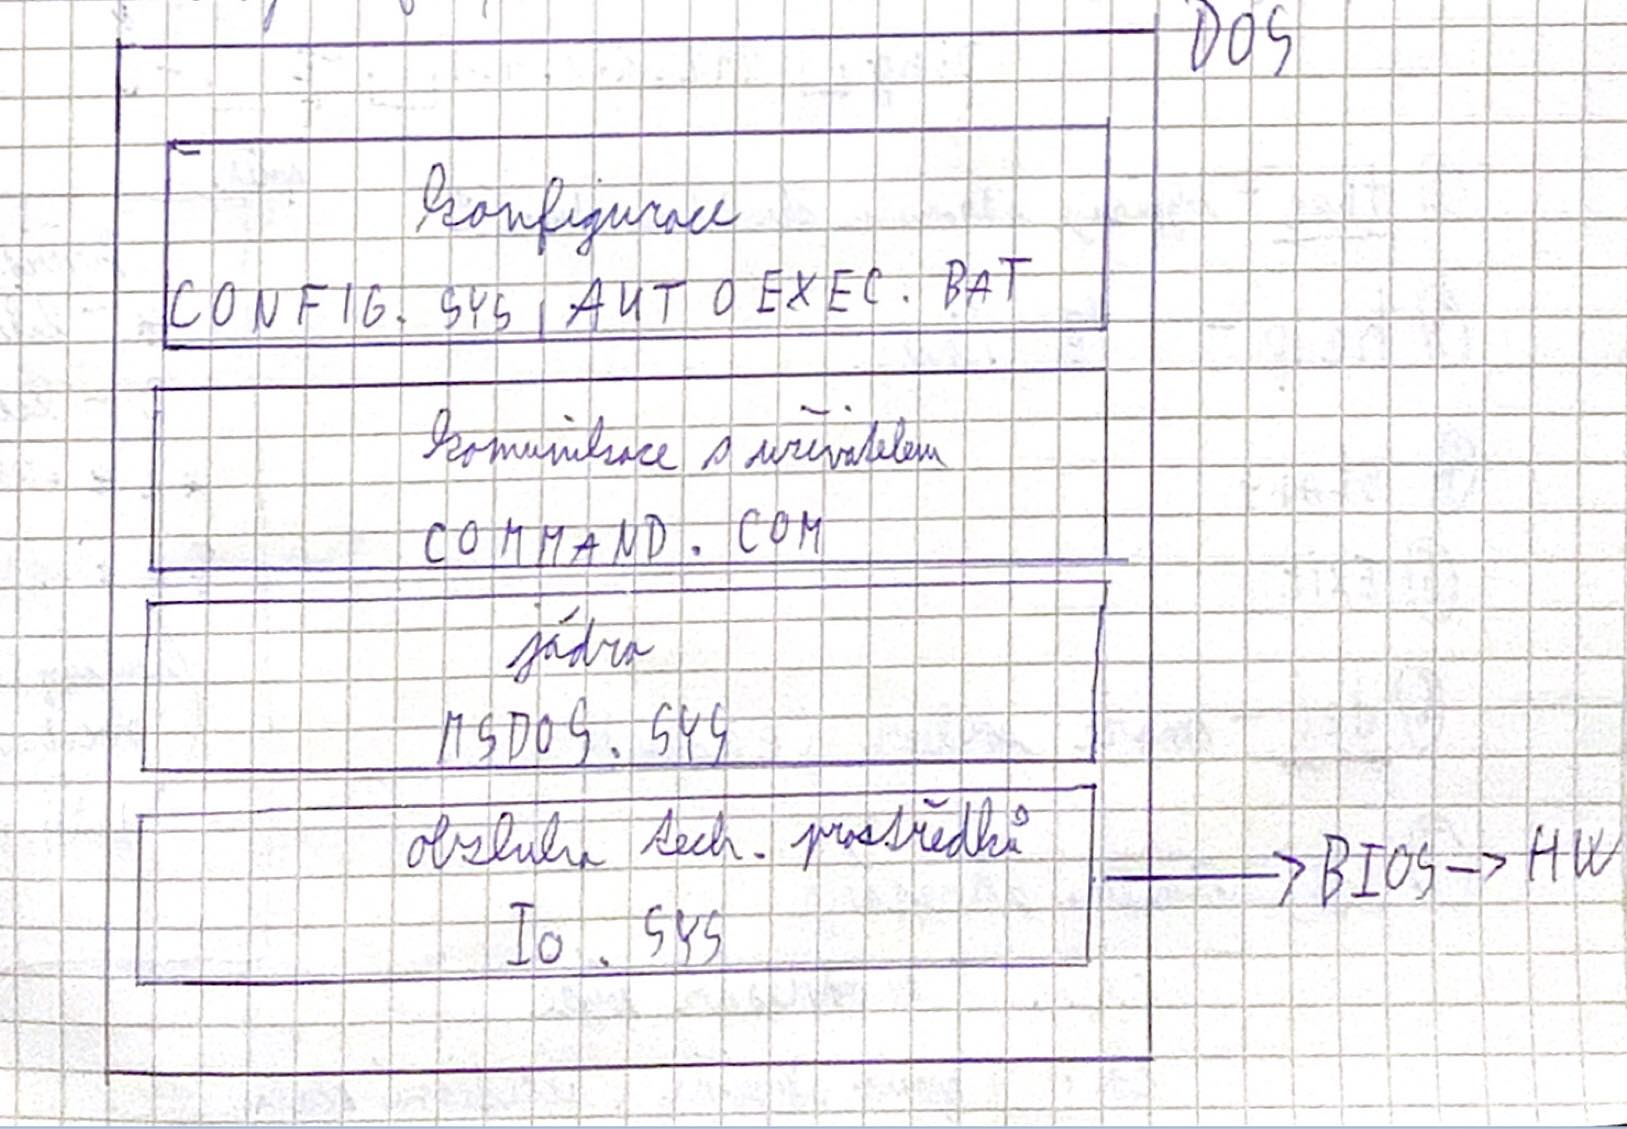 DOS
Konfigurace
CONFIG.SYS, AUTOEXEC.BAT
Komunikace s uživatelem
COMMAND.COM
jádro
MSDOS.SYS
obsluha tech. prostředků
IO.SYS
→ BIOS → HW